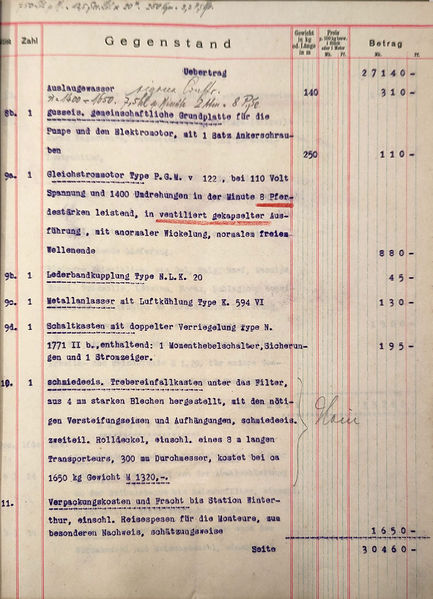 Zahl Gegenstand Gewicht in kg od. Länge in m Preis Mk. Pf. Betrag Mk. Pf.
Uebertrag 27140-
Auslaugewasser 140 310-
n = 1600-1650. 8 PS
8b. 1 gusseis. gemeinschaftliche Grundplatte für die
Pumpe und den Elektromotor, mit 1 Satz Ankerschrau-
ben 250 110-
9a. 1 Gleichstrommotor Type P.G.M. v 122, bei 110 Volt
Spannung und 1400 Umdrehungen in der Minute 8 Pfer-
destärken leistend, in ventiliert gekapselter Aus-
führung, mit anormaler Wickelung, normales freiem
Wellenende 880-
9b. 1 Lederbandkupplung Type N.L.K. 20 45-
9c. 1 Metallanlasser mit Luftkühlung Type K. 594 VI 130-
9d. 1 Schaltkasten mit doppelter Verriegelung Type N.
1771 II b., enthaltend: 1 Momenthebelschalter, Sicherun-
gen und 1 Stromzeiger. 195-
10. 1 schmiedeeis. Trebereinfallkasten unter das Filter,
aus 4 mm starken Blechen hergestellt, mit den nöti-
gen Versteifungseisen und Aufhängungen, schmiedeeis.
zweiteil. Rolldeckel, einschl. eines 8 m langen
Transporteurs, 300 mm Durchmesser, kostet bei ca
1650 kg Gewicht M 1320,-.
11. Verpackungskosten und Fracht bis Station Winter-
thur, einschl. Reisespesen für die Monteure, zum
besonderen Nachweis, schätzungsweise 1650-
Seite 30460-